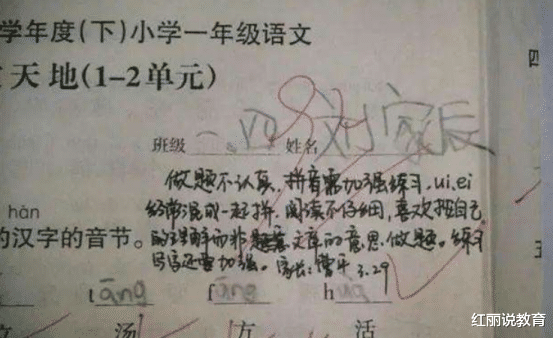 学年度(下)小学一年级语文
天地(1-2单元)
四
班级 一、四 姓名 刘家辰
做题不认真，拼音需加强练习，ui.ei
经常混成一起拼，阅读不仔细，喜欢按自己
的理解而非文章的意思做题。练习
写字还要加强。家长：曾平 3.29
hàn
的汉字的音节。
tāng fāng h
汤 方 活
红丽说教育